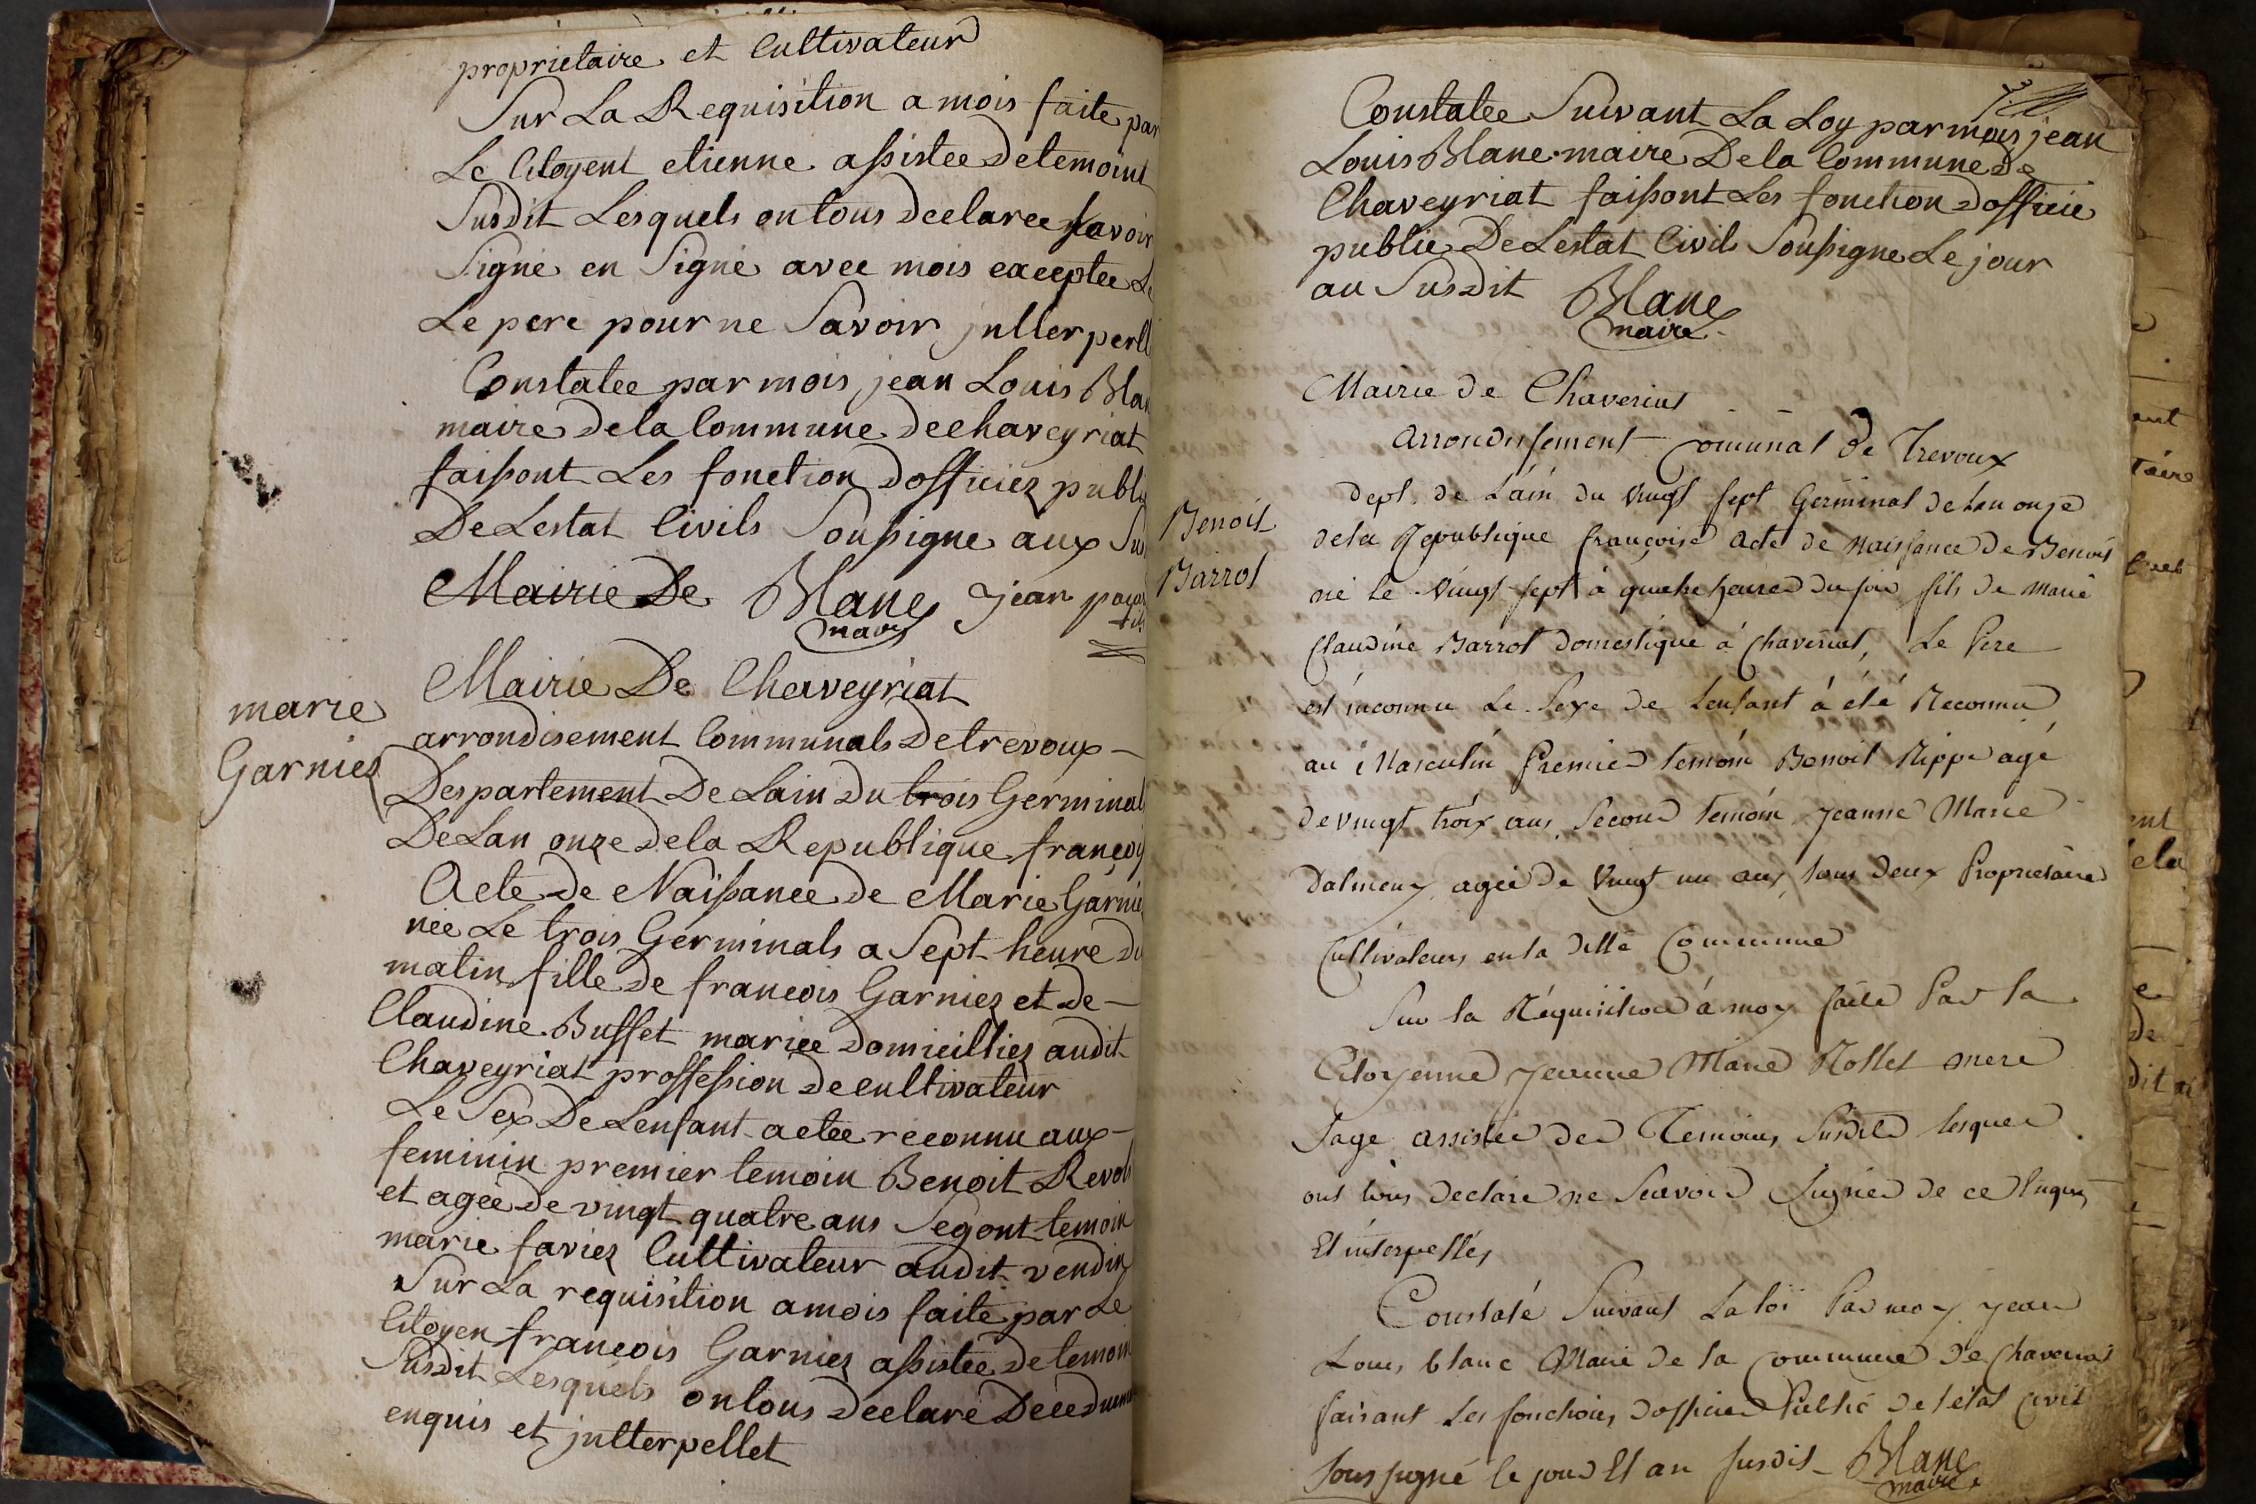 proprietaire et Cultivateur
Sur La Requisition a mois faite par
Le Citoyent etienne assistee De temoint
Susdit Lesquels on tous declaree savoir
Signe en Signe avec mois exceptee Le
Le pere pour ne Savoir jntterpell
Constatee par mois jean Louis Blan
maire De la Commune de chaveyriat
faissont Les fonction Dofficiez publi
De Lestat Civils Soussigne aux Sus
Mairie De Blanc maire jean
marie
Garniez
Mairie De Chaveyriat
arrondisement Communals De trevoux
Despartement De Lain Du trois Germinal
De Lan onze de la Republique françoi
Acte de Naissance de Marie Garnie
née Le trois Germinals a Sept heure du
matin fille de francois Garniez et de
Claudine Buffet mariee Domicilliez audit
Chaveyriat proffession de cultivateur
Le Sex De Lenfant a etee reconnu aux
feminin premier temoin Benoit Revol
et agée de vingt quatre ans Segont temoin
marie faviez Cultivateur audit vendin
Sur La requisition a mois faite par Le
Citoyen francois Garniez assistee de temoin
Susdit Lesquels on tous declaré De ce
enquis et jntterpellet
Constatee Suivant La Loy par mois jean
Louis Blanc maire De la Commune de
Chaveyriat faissont Les fonction Dofficie
public De Lestat Civils Soussigne Le jour
au Susdit Blanc
maire
Mairie de Chaveriat
arrondissement Comunal de Trevoux
Benoit
Barrot
dept. de Lain du Vingt Sept Germinal de Lan onze
de la Republique françoise acte de naissance de Benoit
né le vingt sept à quatre heures du soir fils de marie
Claudine Barrot domestique à Chaveriat, Le Père
est inconnu Le Sexe de Lenfant à été Reconnu
au Masculin Premier temoin Benoit Rippe agé
de vingt trois ans, Second temoin Jeanne Marie
agée de Vingt un ans, tous deux Proprietaires
Cultivateurs en la ditte Commune
Sur la Réquisition à moy faite Par la
Citoyenne Jeanne Marie Rollet mere
Sage assistée des Temoins Susdits lesquels
ont tous declaré ne Scavoir Signer de ce Enquis
Et interpellés
Constaté Suivant La loi Par moy jean
Louis blanc Maire de la Commune de Chaveriat
faisant Les fonctions dofficier Public de l'état Civil
Soussigné le jour Et an susdit Blanc
maire